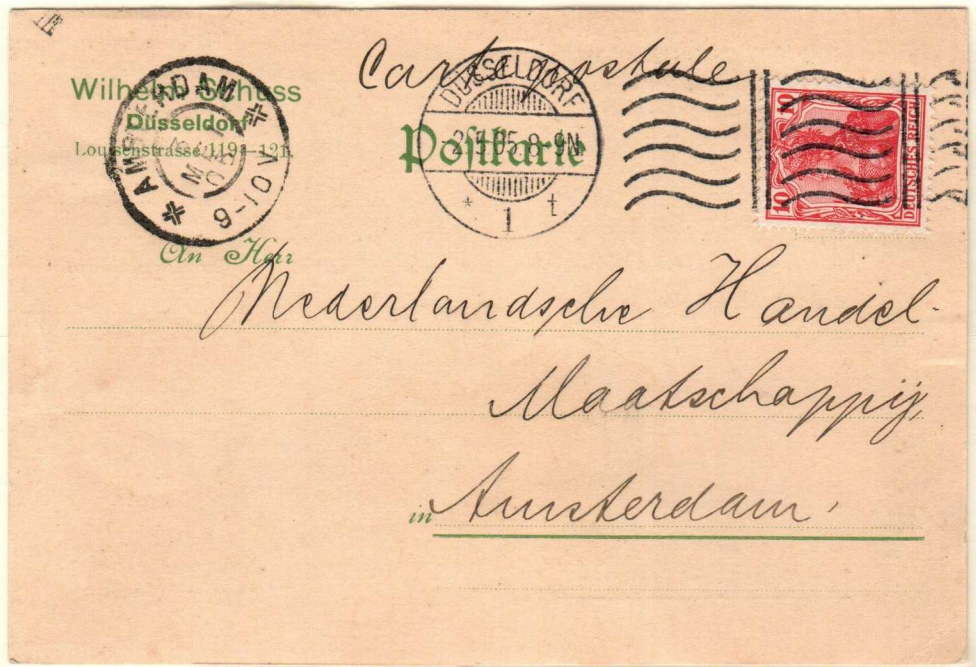 Carte postale
Wilhelm Schuss
Düsseldorf
Louisenstrasse 119a-121.
AMSTERDAM
9-10 V
DÜSSELDORF
5.05.8-9N
* 1 t
Postkarte
10 10
DEUTSCHES REICH
An Herr
Nederlandsche Handel-
Maatschappij,
in Amsterdam.